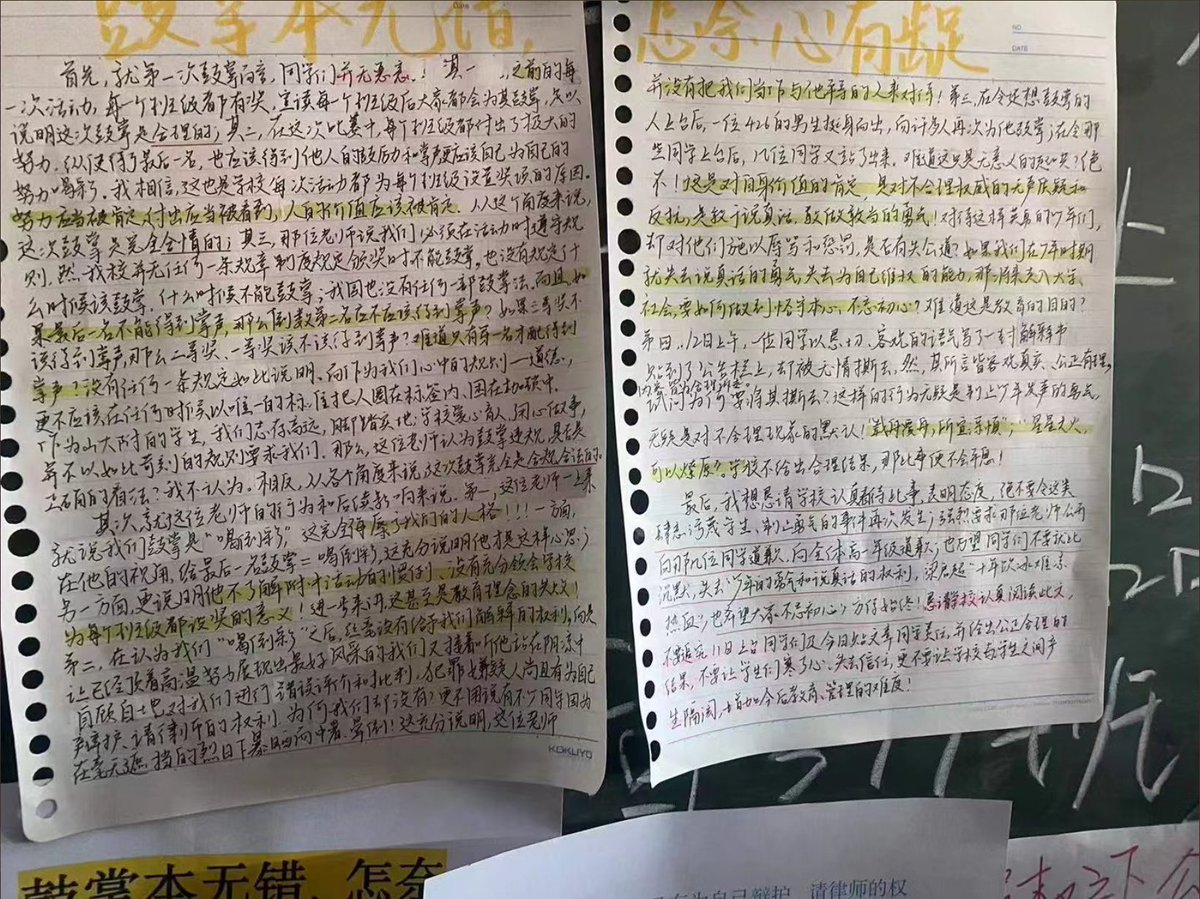 鼓掌本无错,
Date
首先,就第一次鼓掌而言,同学们并无恶意!其一,之前的每
一次活动,每一个班级都有奖,宣读每一个班级后大家都会为其鼓掌,足以
说明这次鼓掌是合理的;其二,在这次比赛中,每个班级都付出了极大的
努力,纵使得了最后一名,也应该得到他人的鼓励和掌声更应该自己为自己的
努力喝彩。我相信,这也是学校每次活动都为每个班级设置奖项的原因。
努力应当被肯定,付出应当被看到,人的价值应该被肯定。从这个角度来说,
这次鼓掌是完全合情的;其三,那位老师说我们必须在活动时遵守规
则,然我校并无任何一条规章制度规定颁奖时不能鼓掌,也没有规定什
么时候该鼓掌,什么时候不能鼓掌;我国也没有任何一部鼓掌法。而且,如
果最后一名不能得到掌声,那么倒数第二名应不应该得到掌声?如果三等奖不
该得到掌声,那么二等奖、一等奖该不该得到掌声?难道只有第一名才配得到
掌声?没有任何一条规定如此说明,而作为我们心中的规则—道德,
更不应该在任何时候以唯一的标准把人困在标签内、困在枷锁中。
作为山大附的学生,我们志存高远,脚踏实地;学校爱心育人,用心做事,
并不以如此苛刻的规则要求我们。那么,这位老师认为鼓掌违规,是否是
正确的看法?我不认为。相反,从各个角度来说,这次鼓掌完全是合规合法的。
其次,就这位老师的行为和后续影响来说。第一,这位老师一上来
就说我们鼓掌是“喝倒彩”,这完全侮辱了我们的人格!!!一方面,
在他的视角,给最后一名鼓掌=喝倒彩,这充分说明他才是这样心思;
另一方面,更说明他不了解附中活动的惯例、没有充分领会学校
为每个班级都设奖的意义!进一步来讲,这甚至是教育理念的失败!
第二,在认为我们“喝倒彩”之后,丝毫没有给予我们解释的权利,而是
让已经顶着高温努力展现出最好风采的我们又接着听他站在阴凉中
自顾自地对我们进行错误评价和批判。犯罪嫌疑人尚且有为自己
辩护、请律师的权利,为何我们却没有?更不用说有不少同学因为
在毫无遮挡的烈日下暴晒而中暑、晕倒!这充分说明,这位老师
KOKUYO
怎奈心有龊
NO
DATE
并没有把我们当作与他平等的人来对待!第三,在令还想鼓掌的
人上台后,一位426的男生挺身而出,向许多人再次为他鼓掌;在令那
些同学上台后,几位同学又站了出来。难道这只是无意义的起哄?绝
不!这是对自身价值的肯定,是对不合理权威的无声质疑和
反抗,是敢于说真话、敢做敢当的勇气!对待这样英勇的少年们,
却对他们施以辱骂和惩罚,是否有失公道?如果我们在少年时期
就失去说真话的勇气,失去为自己维权的能力,那将来走入大学、
社会,要如何做到恪守本心、不忘初心?难道这是教育的目的?
第四,12日上午,一位同学以恳切、客观的语气写了一封解释书
贴到了公告栏上,却被无情撕去。然,其所言皆客观真实、公正有理,
试问为何要将其撕去?这样的行为无疑是剥夺少年发声的勇气,
无疑是对不合理现象的默认!载舟覆舟,所宜深慎;星星之火,
可以燎原。学校不给出合理结果,那此事便不会平息!
最后,我想恳请学校认真对待此事,表明态度,绝不要令这类
肆意污蔑学生、剥夺勇气的事件再次发生;强烈要求那位老师公开
向那几位同学道歉,向全体高一年级道歉;也希望同学们不要就此
沉默,失去少年的勇气和说真话的权利,梁启超“十年饮冰,难凉
热血”,也希望大家不忘初心,方得始终!恳请校认真阅读此文,
不要追究11日上台同学们及今日贴文章同学责任,并给出公正合理的
结果,不要让学生们寒了心、失去信任,更不要让学校与学生之间产
生隔阂,增加今后教育、管理的难度!
鼓掌本无错,怎奈
有为自己辩护、请律师的权